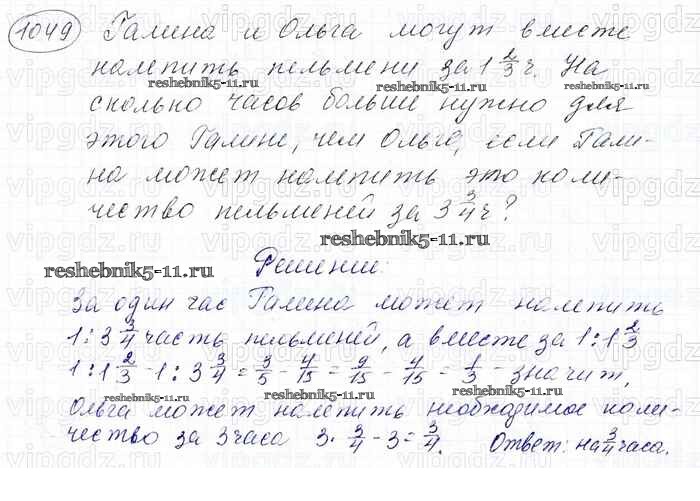 1049 Галина и Ольга могут вместе
налепить пельмени за 1 2/3 ч. На
сколько часов больше нужно для
этого Галине, чем Ольге, если Гали-
на может налепить это коли-
чество пельменей за 3 3/4 ч?
Решение:
За один час Галина может налепить
1 : 3 3/4 часть пельменей, а вместе за 1 : 1 2/3
1 : 1 2/3 - 1 : 3 3/4 = 3/5 - 4/15 = 9/15 - 4/15 = 1/3 - значит,
Ольга может налепить необходимое коли-
чество за 3 часа 3 · 3/4 - 3 = 3/4. Ответ: на 3/4 часа.
reshebnik5-11.ru
reshebnik5-11.ru
reshebnik5-11.ru
reshebnik5-11.ru
reshebnik5-11.ru
reshebnik5-11.ru